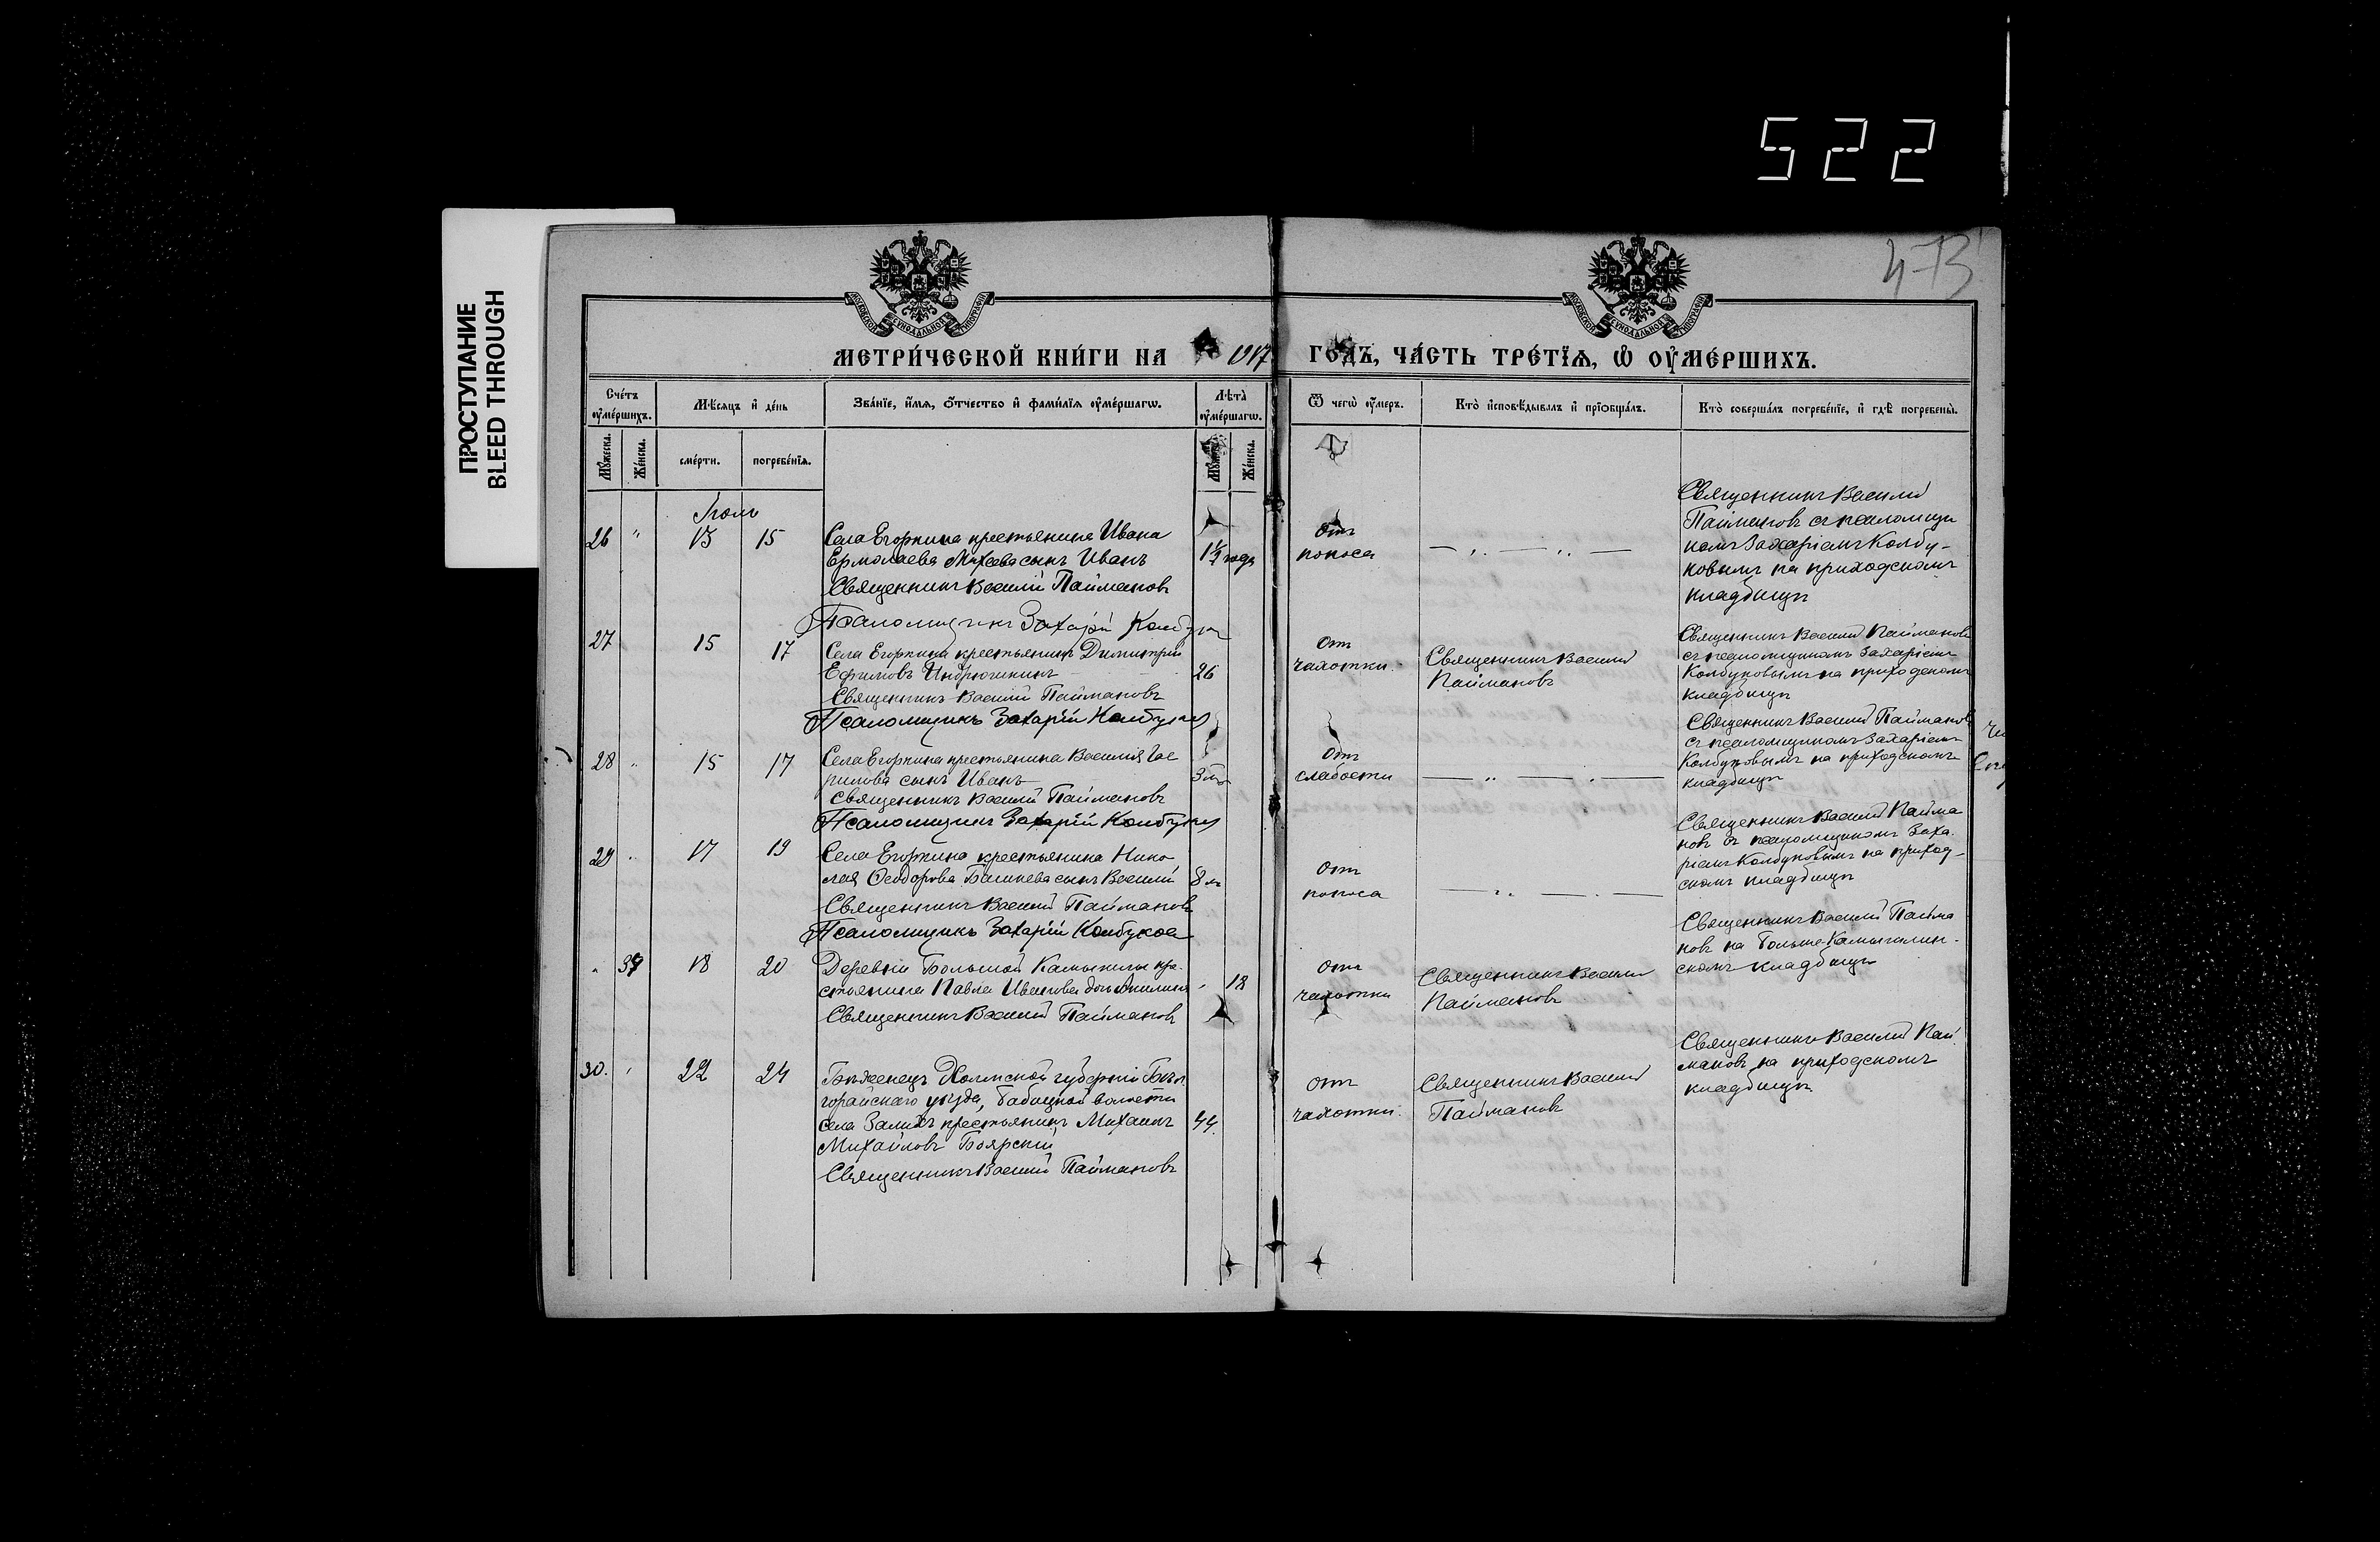 522
ПРОСТУПАНИЕ
BLEED THROUGH
473
МОСКОВСКОЙ СѴНОДАЛЬНОЙ ТИПОГРАФІИ
МОСКОВСКОЙ СѴНОДАЛЬНОЙ ТИПОГРАФІИ
МЕТРИ́ЧЕСКОЙ КНИ́ГИ НА 1917 ГОДЪ, ЧА́СТЬ ТРЕ́ТЇѦ, Ѡ҆ ОУ҆МЕ́РШИХЪ.
Сче́тъ оу҆ме́ршихъ.
Мѣ́сяцъ и҆ де́нь
Зва́нїе, и҆́мѧ, ѻ҆́тчество и҆ фами́лїѧ оу҆ме́ршагѡ.
Лѣ́та оу҆ме́ршагѡ.
Ѿ чегѡ̀ оу҆́меръ.
Кто̀ и҆сповѣ́дывалъ и҆ прїѡбща́лъ.
Кто̀ соверша́лъ погребе́нїе, и҆ гдѣ̀ погребены̀.
Мꙋ́жеска.
Же́нска.
сме́рти.
погребе́нїѧ.
Же́нска.
Іюль
26 " 13 15
Села Егоркина крестьянина Ивана
Ермолаева Михеева сынъ Иванъ
Священникъ Василій Паймановъ
Псаломщикъ Захарій
1½ года
отъ
поноса
Священникъ Василій
Паймановъ съ псаломщи
комъ Захаріемъ Колбу-
ковымъ на приходскомъ
кладбищѣ
27 15 17
Села Егоркина крестьянинъ Димитрій
Ефимовъ
Священникъ Василій Паймановъ
Псаломщикъ Захарій
26
Отъ
чахотки.
Священникъ Василій
Паймановъ
Священникъ Василій Паймановъ
съ псаломщикомъ Захаріемъ
Колбуковымъ на приходскомъ
кладбищѣ
28 " 15 17
Села Егоркина крестьянина Василія Гав
рилова сынъ Иванъ
Священникъ Василій Паймановъ
Псаломщикъ Захарій
Отъ
слабости
Священникъ Василій Паймановъ
съ псаломщикомъ Захаріемъ
Колбуковымъ на приходскомъ
кладбищѣ
29 " 17 19
Села Егоркина крестьянина Нико
лая Ѳеодорова сынъ Василій
Священникъ Василій Паймановъ
Псаломщикъ Захарій Колбуков
8 м
отъ
поноса
Священникъ Василій Пайма
новъ съ псаломщикомъ Заха
ріемъ Колбуковымъ на приход-
скомъ кладбищѣ
" 18 20
Деревни Большой Камышлы кре
стьянина Павла Иванова дочь
Священникъ Василій Паймановъ
18
отъ
чахотки
Священникъ Василій
Паймановъ
Священникъ Василій Пайма
новъ на
скомъ кладбищѣ
30. " 22 24
Бѣженецъ Холмской губерніи Бѣл
горайскаго уѣзда, Бабицкой волости
села крестьянинъ Михаилъ
Михайловъ Боярскій
Священникъ Василій Паймановъ
44.
отъ
чахотки.
Священникъ Василій
Паймановъ
Священникъ Василій Пай
мановъ на приходскомъ
кладбищѣ